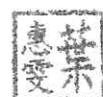 葉
惠雯